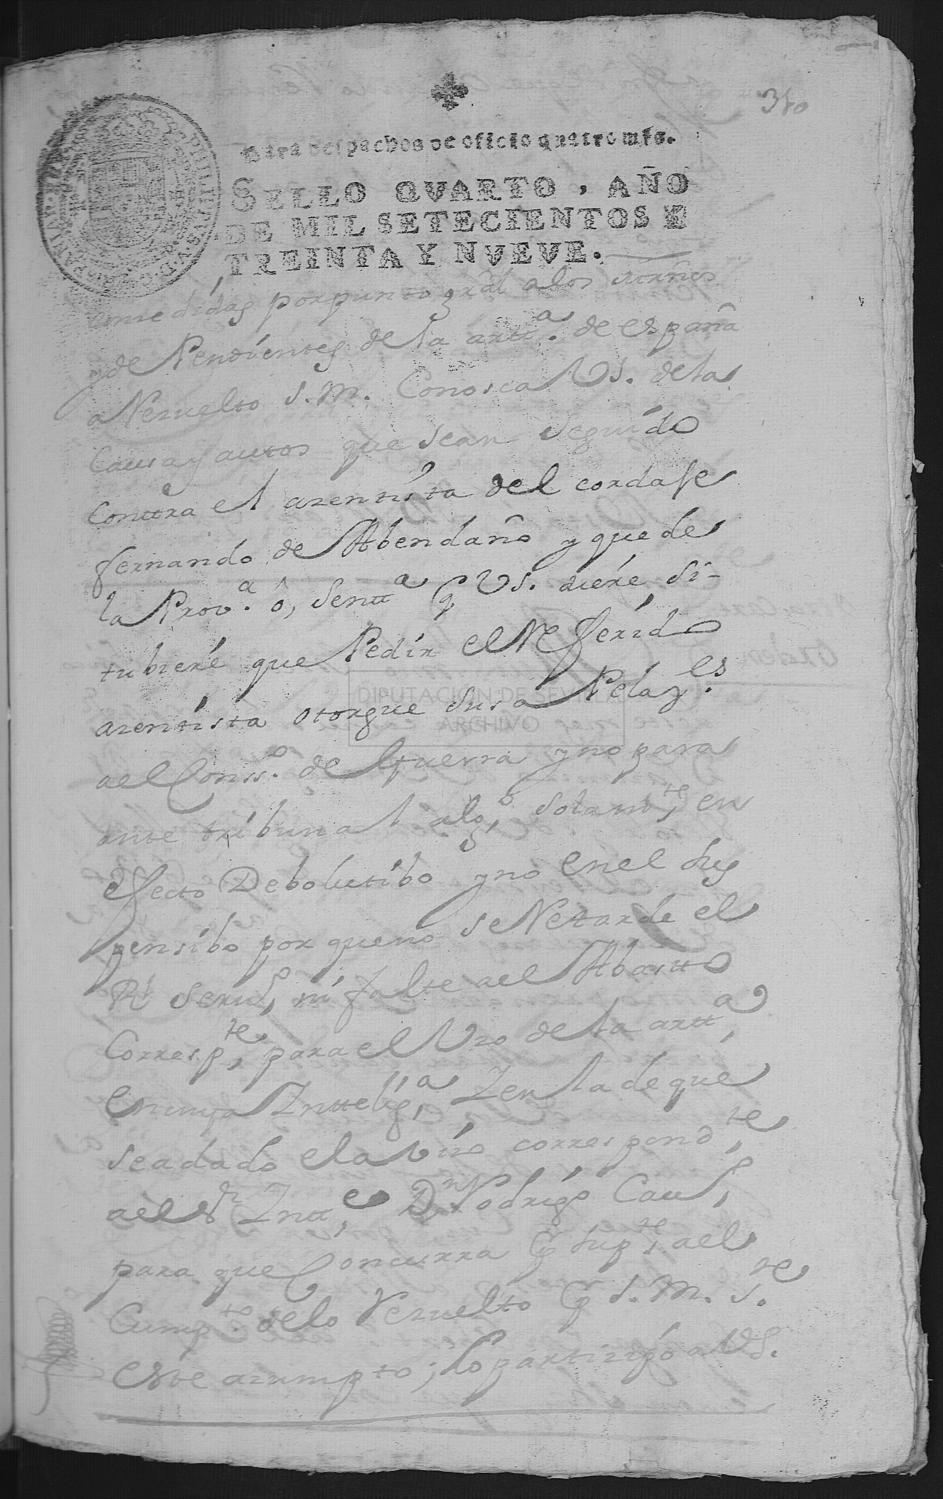 340
Para despachos de oficio quatro mrs.
SELLO QVARTO, AÑO
DE MIL SETECIENTOS Y
TREINTA Y NVEVE.
PHILIPPVS V D G
HISPANIAR
consedidas por punto gral a los
de Pendientes de la artta. de españa
a Rezuelto S. M. Conosca Vs. de la
Causa y autos que sean seguido
Contra el azentista del cordaje
fernando de Abendaño y que de
la Prova. ô, Sentta q Vs. diere, si-
tubiere que Pedir el Referido
azentista otorgue su sa Pelazes.
a el Consso. de Guerra y no para
ante tribunal algo, Solamte, en
efecto Debolutibo y no en el sus
pensibo por que no se Rettarde el
Rl Serus, ni falte a el Abastto
Correspte, para el Uzo de la artta,
en cuya Intteliga, Zen la de que
sea dado el abizo correspondte,
a el Sr Intte, Dn Rodrigo Caus,
para que Concurra q su pte, a el
Cumpte. de lo Rezuelto q S. M. Se.
este azumpto; lo partizipo a VS.
DIPUTACION DE SEVILLA
ARCHIVO